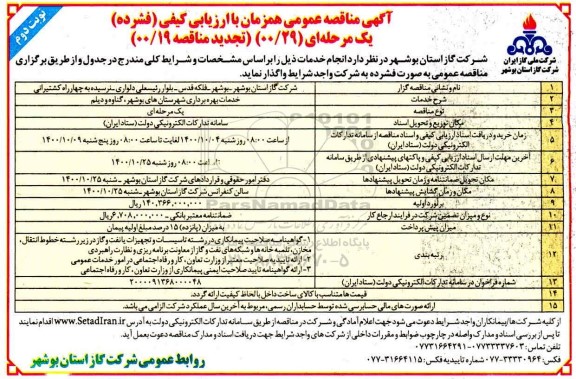 نوبت دوم
آگهی مناقصه عمومی همزمان با ارزیابی کیفی (فشرده)
یک مرحله‌ای (۰۰/۲۹) (تجدید مناقصه ۰۰/۱۹)
شرکت ملی گاز ایران
شرکت گاز استان بوشهر
شرکت گاز استان بوشهر در نظر دارد انجام خدمات ذیل را براساس مشخصات و شرایط کلی مندرج در جدول و از طریق برگزاری
مناقصه عمومی به صورت فشرده به شرکت واجد شرایط واگذار نماید.
۱ نام و نشانی مناقصه گزار شرکت گاز استان بوشهر_بوشهر_فلکه قدس_بلوار رئیسعلی دلواری_نرسیده به چهارراه کشتیرانی
۲ شرح خدمات خدمات بهره برداری شهرستان های بوشهر، گناوه و دیلم
۳ نوع مناقصه یک مرحله ای
۴ مکان توزیع و تحویل اسناد سامانه تدارکات الکترونیکی دولت (ستاد ایران)
۵ زمان خرید و دریافت اسناد ارزیابی کیفی و اسناد مناقصه از سامانه تدارکات
الکترونیکی دولت (ستاد ایران) از ساعت ۰۸:۰۰ روز ۱۴۰۰/۱۰/۰۴ لغایت تا ساعت ۰۸:۰۰ روز پنج شنبه ۱۴۰۰/۱۰/۰۹
۶ آخرین مهلت ارسال اسناد ارزیابی کیفی و پاکتهای پیشنهادی از طریق سامانه
تدارکات الکترونیکی دولت (ستاد ایران) تا ساعت ۰۸:۰۰ روز ۱۴۰۰/۱۰/۲۵
۷ مکان تحویل ضمانتنامه و زمان تحویل پیشنهادها دفتر امور حقوقی و قراردادهای شرکت گاز استان بوشهر_شنبه ۱۴۰۰/۱۰/۲۵
۸ مکان و زمان گشایش پیشنهادها سالن کنفرانس شرکت گاز استان بوشهر_شنبه ۱۴۰۰/۱۰/۲۵
۹ برآورد اولیه ۱۴۰,۳۶۶,۰۰۰,۰۰۰ ریال
۱۰ نوع و میزان تضمین شرکت در فرایند ارجاع کار ضمانتنامه معتبر بانکی _ ۶,۷۰۸,۰۰۰,۰۰۰ ریال
۱۱ میزان پیش پرداخت به میزان (پانزده) ۱۵ درصد مبلغ اولیه پیمان
۱۲ رتبه بندی ۱-گواهینامه صلاحیت پیمانکاری در رشته تاسیسات و تجهیزات یا نفت و گاز در زیر رشته خطوط انتقال،
مخازن، تلمبه خانه ها و شبکه های نفت و گاز از معاونت برنامه ریزی و نظارت راهبردی
۲- ارائه تاییدیه صلاحیت معتبر از وزارت تعاون، کار و رفاه اجتماعی در امور خدمات عمومی
۳- ارائه گواهینامه تایید صلاحیت ایمنی پیمانکاری از وزارت تعاون، کار و رفاه اجتماعی
۱۳ شماره فراخوان در سامانه تدارکات الکترونیکی دولت (ستاد ایران) ۲۰۰۰۰۹۱۳۶۸۰۰۰۰۴۸
۱۴ قیمت ها متناسب با کالای ساخت داخل با لحاظ کیفیت ارائه گردد.
۱۵ ارائه صورت های مالی حسابرسی شده توسط حسابداران رسمی، مربوط به آخرین سال عملکرد شرکت الزامی می باشد
از کلیه شرکت ها/پیمانکاران واجد شرایط دعوت می شود جهت اعلام آمادگی و شرکت در مناقصه از طریق سامانه تدارکات الکترونیکی دولت به آدرس www.SetadIran.ir اقدام نمایند
تا پس از بررسی اسناد و مدارک واصله در چارچوب ضوابط و مقررات داخلی از شرکت های واجد شرایط جهت دریافت اسناد و مدارک مناقصه دعوت بعمل آید.
تلفن تماس: ۰۷۷۳۳۳۳۷۶۰۳ - ۰۷۷۳۱۶۶۴۲۹۱
شماره فکس: ۳۳۳۳۰۹۶۴-۰۷۷ شماره تاییدیه فکس: ۳۱۶۶۴۱۱۵-۰۷۷
روابط عمومی شرکت گاز استان بوشهر